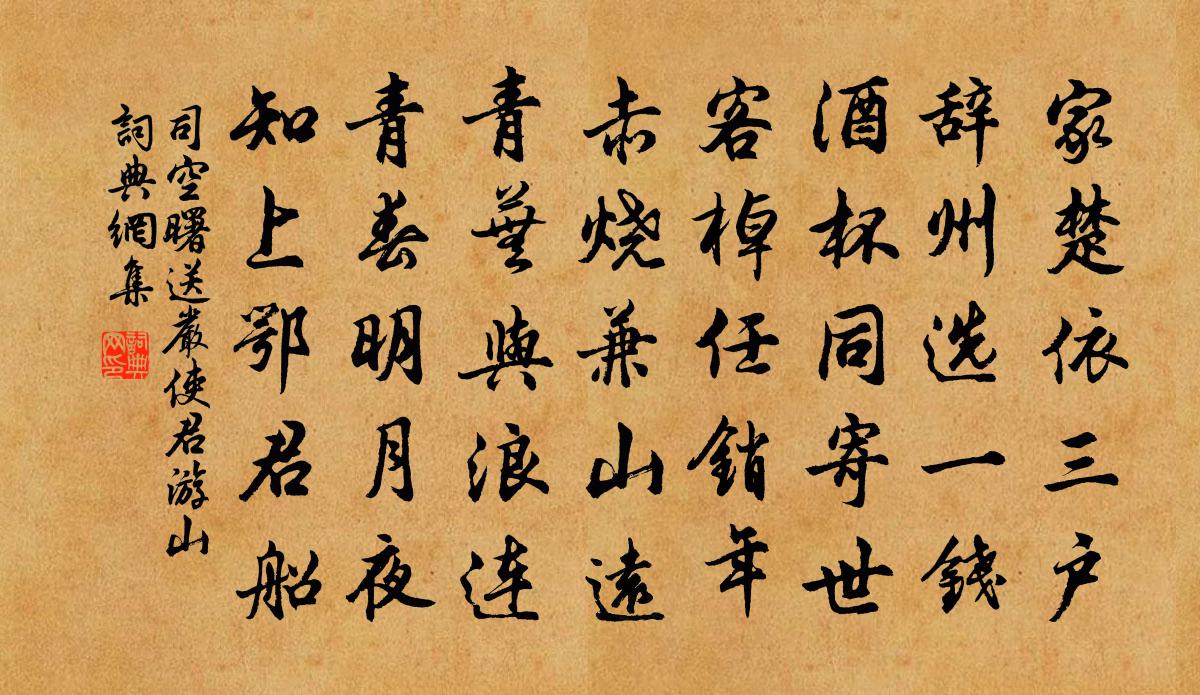 家楚依三户
辞州选一錢
酒杯同寄世
客棹任銷年
赤烧兼山遠
青蕪與浪連
青春明月夜
知上鄂君船
司空曙送嚴使君游山
詞典網集